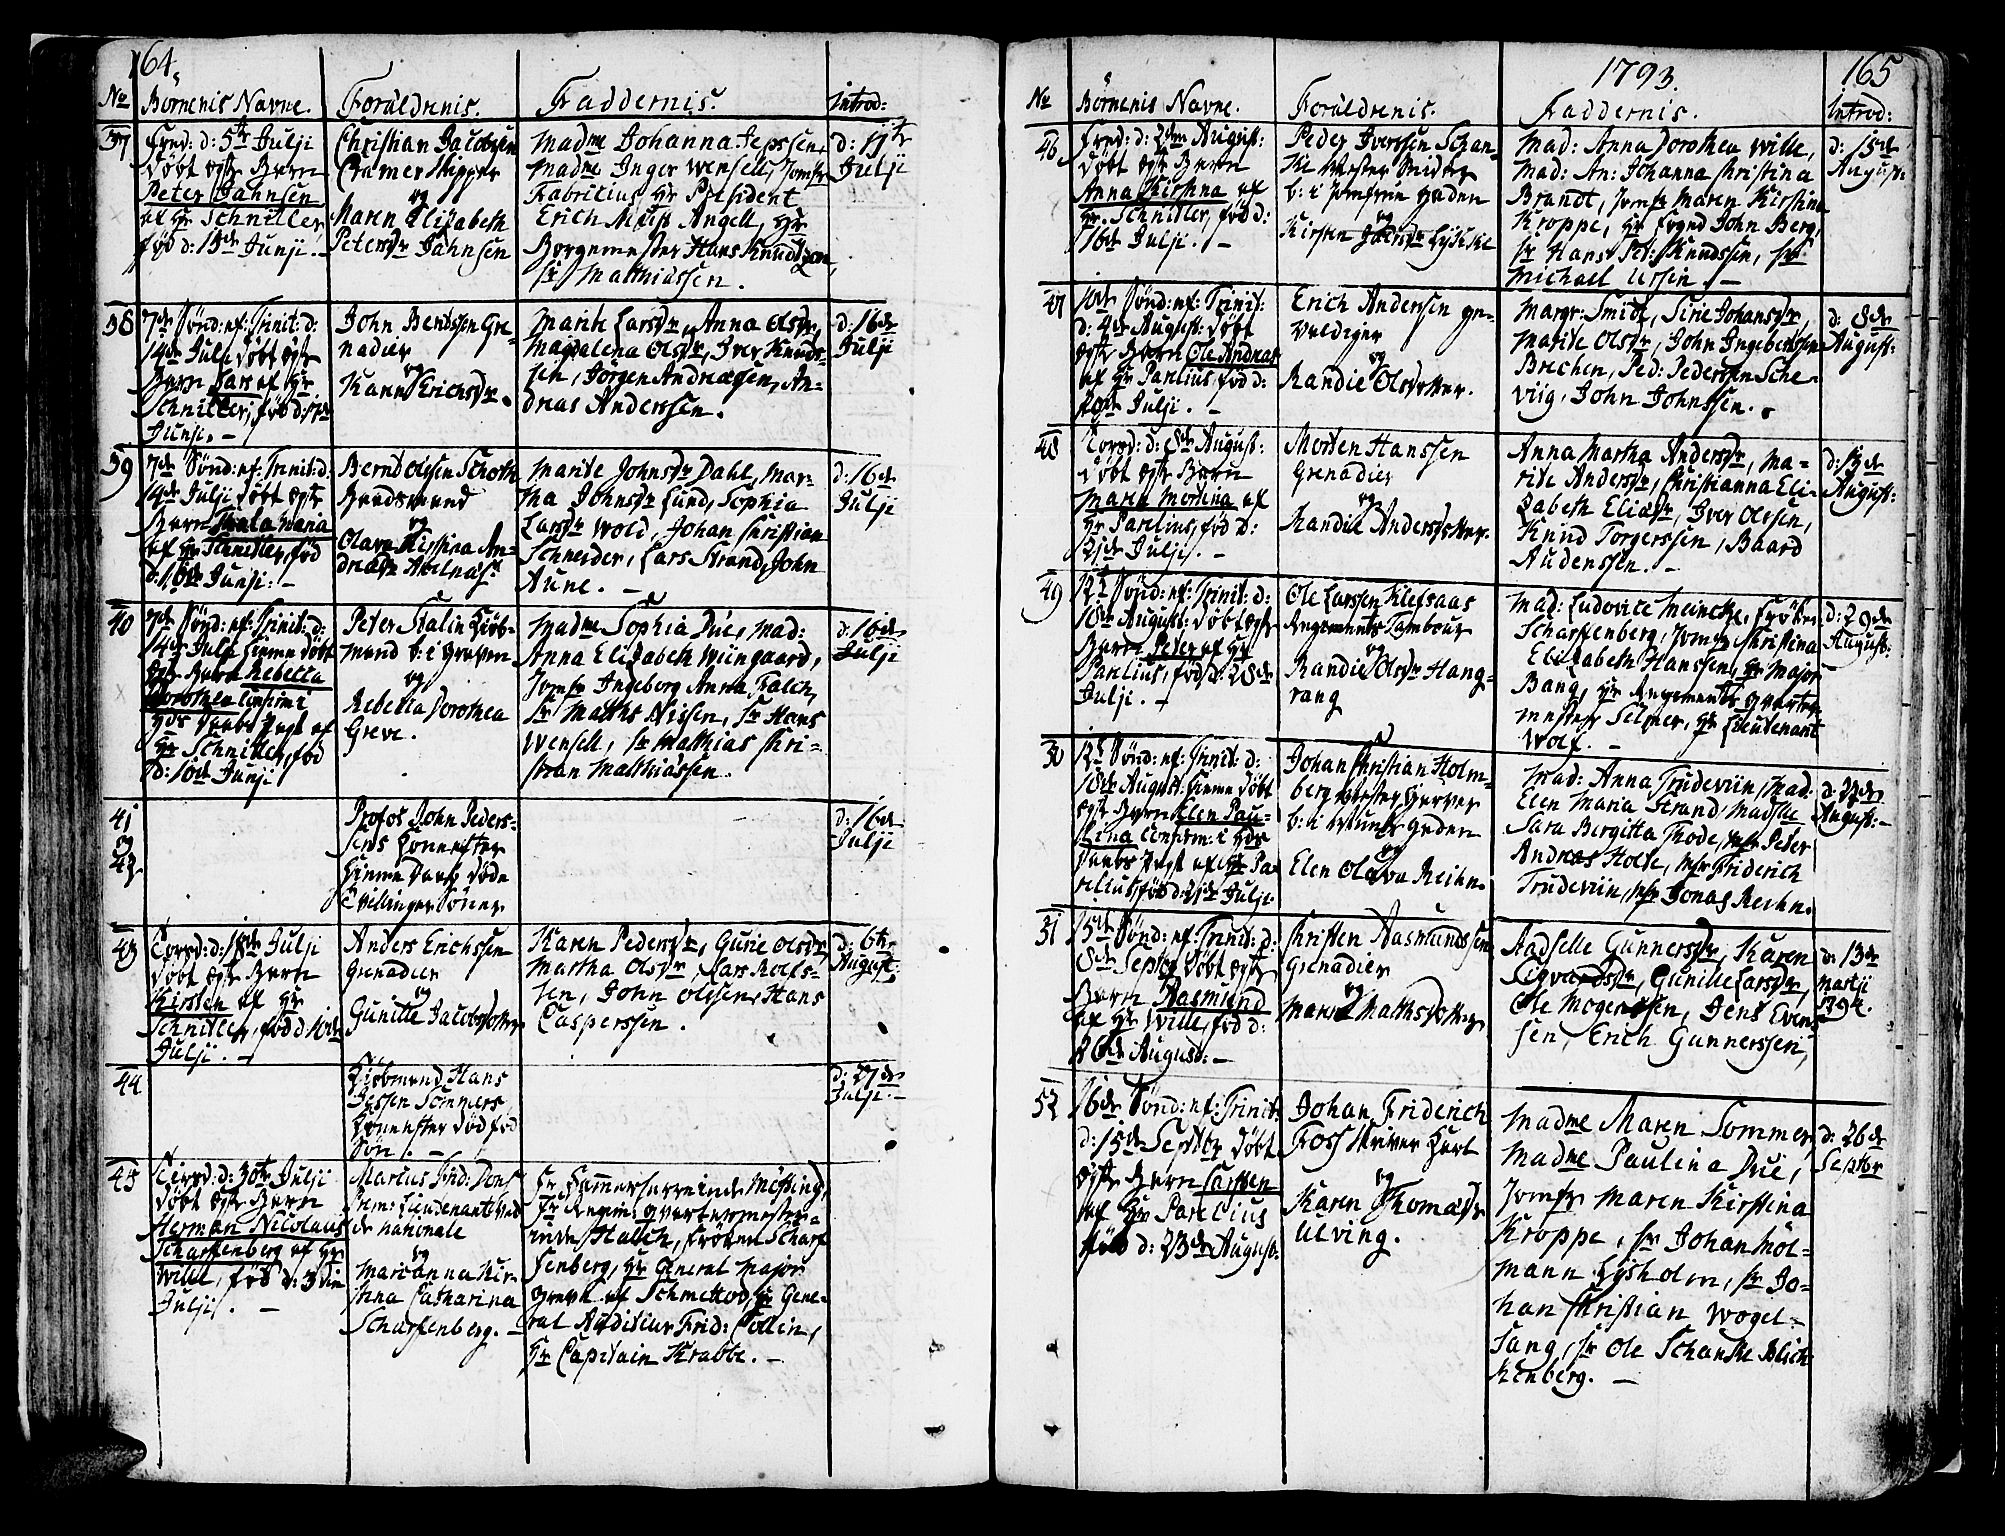 164.
No
Börnenis Navne.
Forældrenis.
Faddernis.
Introd:
37
Fred: d: 5te Julji
döbt Ægte Barn
Peter Jahnsen
af Hr Schnitler
föd d: 13de Junji. -
Christian Jacobsen
Cramer Skipper
og
Maren Elisabeth
Petersdr Jahnsen
Madme Johanna Jepssen,
Madme Inger Wensell, Jomfr
Fabritius, Hr Præsident
Erich Must Angell, Hr
Borgemester Hans Knudtzon,
Sr Matthiassen.
d: 17de
Julji
38
7de Sönd: ef: Trinit: d:
14de Julji döbt Ægte
Barn Lars af Hr
Schnitler, föd d:
Junji. -
John Berntssen Gre-
nadier
og
Karen Erichsdr.
Marit Larsdr, Anna Olsdr,
Magdalena Olsdr, Iver Knuds-
sen, Jörgen Andreæsen, An-
dreas Anderssen.
d: 16de
Julji
39
7de Sönd: ef: Trinit: d:
14de Julji döbt Ægte
Barn
af Hr Schnitler, föd
d: 16de Junji: -
Bernt Olssen Schoth
Bordsmand
og
Olava Kirstina An-
dreæ
Marite Johnsdr Dahl, Mar-
tha Johnsdr Lund, Sophia
Larsdr Wold, Johan Christian
Schneider, Lars Strand, John
Aune. -
d: 16de
Julji
40
7de Sönd: ef: Trinit: d:
14de Julji hieme döbt
Ægte Barn Rebecca
Dorothea Confirm: i
Hos af
Hr Schnitler, föd
d: 10de Junji
Peter Stalin Kiöb-
mand b: i Graven
og
Rebecca Dorothea
Greve.
Madme Sophia Due, Mad:
Anna Elisabeth Wiingaard,
Jomfr Ingeborg Anna Falch,
Sr Matths Nissen, Sr Hans
Wensell, Sr Matthias Chri-
stian Matthiassen.
d: 16de
Julji
41
og
42
Profos John Peders-
sens Konnes
hieme Döde
Tvillinger Sönner
d: 16de
Julji
43
Torsd: d: 18de Julji
döbt Ægte Barn
Kirsten af Hr
Schnitler, föd d 10de
Julji. -
Anders Erichssen
Grenadier
og
Gunille Jacobsdotter
Karen Pedersdr, Gurie Olsdr,
Martha Olsdr, Lars Rolfs-
sen, John Olssen, Hans
Casperssen.
d: 6te
August:
44
Kiöbmand Hans
Jessen Sommers
Dödföd
Sön. -
d: 27de
Julji. -
45
Tirsd: d: 30te Julji
döbt Ægte Barn
Herman Nicolaus
Scharffenberg af Hr
Wille, föd d: 3die
Julji. -
Marcus Frid: Dons
Prem: Lieutenant ved
de nationale
og
Marianna Kir-
stina Catharina
Scharfenberg. -
Fr Kammerherreinde Mösting,
Fr Regim: Qvarteermester-
inde Hatch, Fröken Scharf-
fenberg, Hr General Major
Greve af Schmettov, Hr Gene-
ral Auditeur Frid: Collin,
Hr Capitain Krabbe. -
165
1793.
No
Börnenis Navne.
Forældrenis.
Faddernis.
Introd:
46
Fred: d: 2den August:
döbt Ægte Barn
Anna Kirstina af
Hr. Schnitler, föd d:
16de Julji. -
Peder Iverssen Schan-
ke Mester Snider
b: i Jomfrue Gaden
og
Kirsten Jacobsdr Lyskske
Mad: Anna Dorothea Wille,
Mad: An: Johanna Christina
Brandt, Jomfr Maren Kirstina
Kroppe, Hr Fogd John Berg,
Sr Hans Pet: Knudssen, Sr
Michael Ursin. -
d: 15de
August:
47
10de Sönd: ef: Trinit:
d: 4de August: döbt
Ægte Barn Ole Andreas
af Hr Parelius, föd d:
Julji. -
Erich Anderssen ge-
valdiger
og
Randie Olsdotter.
Margr: Smidt, Sirie Johansdr,
Marite Olsdr, John Ingebretssen
Brechen, Ped: Pederssen Sche-
viig, John Johnssen.
d: 8de
August:
48
Torsd: d: 8de August:
döbt Ægte Barn
Maren Mortina af
Hr Parelius, föd d:
21de Julji. -
Morten Hanssen
Grenadier
og
Randie Andersdotter.
Anna Martha Andersdr, Ma-
rite Andersdr, Christianna Eli-
zabeth Eliædr, Iver Olssen,
Knud Torgerssen, Baard
Audenssen. -
d: 13de
August:
49
12te Sönd: ef: Trinit: d:
18de August: döbt Ægte
Barn Peter af Hr
Parelius, föd d: 28de
Julji. -
Ole Larssen Klefsaas
Regiments Tambour
og
Randie Olsdr Hang-
rang
Mad: Ludovice Meincke, Fröken
Scharffenberg, Jomfr Christina
Elizabeth Hanssen, Hr Major
Bang, Hr Regiments Qvarter-
mester Selmer, Hr Lieutenant
Wolf. -
d: 29de
August:
50
12te Sönd: ef: Trinit: d:
18de August: hieme döbt
Ægte Barn Elen Pau-
lina Confirm: i Hos-
af Hr Pa-
relius, föd d: 21de Julji.
Johan Christian Holm-
berg Mester Garver
b: i Munke Gaden
og
Elen Olava Reihn.
Mad: Anna Trudeviin, Mad:
Elen Maria Strand, Madslle
Sara Bergitta Thode, Mfr Peter
Andreas Holte, Mfr Friderich
Trudeviin, Mfr Jonas Reihn.
d: 22de
August: -
51
15de Sönd: ef: Trinit: d:
8de Septbr döbt Ægte
Barn Aasmund
af Hr Wille, föd d:
26de August: -
Christen Aasmundssen
Grenadier
og
Marit Mathsdotter
Aadselle Gunnersdr, Karen
Sigvardsdr, Gunille Larsdr,
Ole Mogenssen, Jens Even-
sen, Erich Gunnerssen,
d: 13de
Martji
1794.
52
16de Sönd: ef: Trinit:
d: 15de Septbr döbt
Ægte Barn Carsten
af Hr Parelius
föd d: 23de August:
Johan Friderich
Foss Skriver Karl
og
Karen Thomædr
Ulving.
Madme Maren Sommer,
Madme Paulina Due,
Jomfr Maren Kirstina
Kroppe, Sr Johan Möl-
mann Lysholm, Sr Jo-
han Christian Wogel-
sang, Sr Ole Schanke Blich-
kenberg. -
d: 26de
Septbr